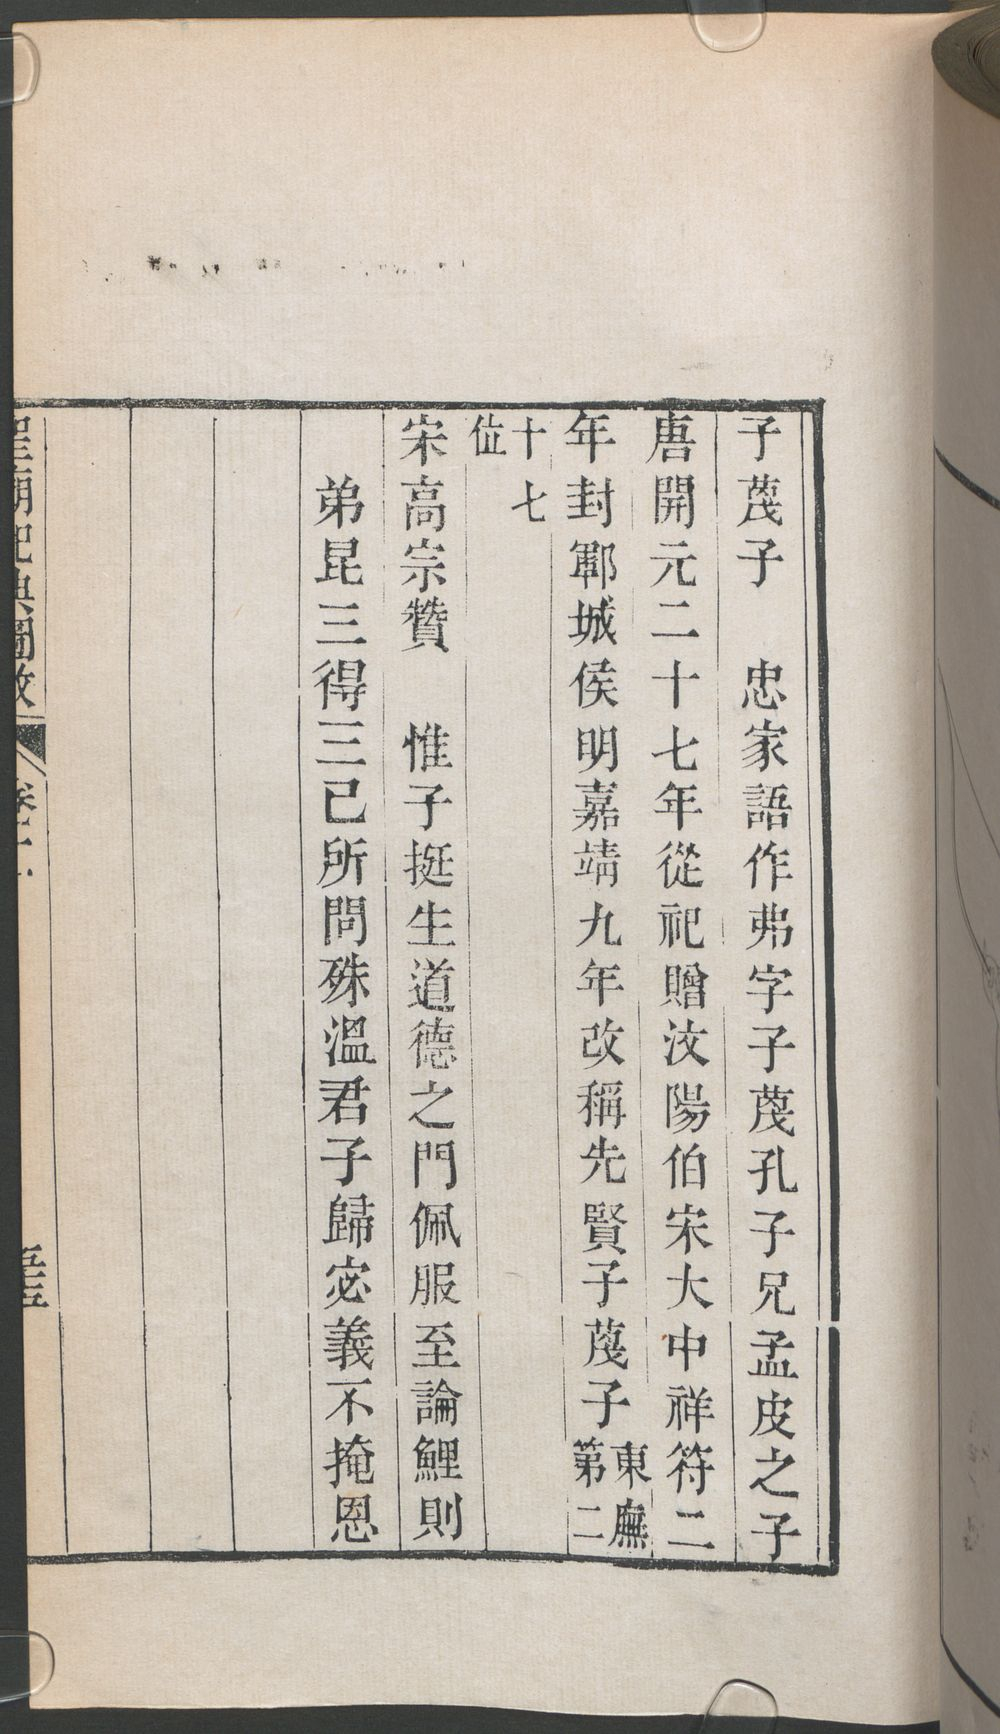 子蔑子　忠家語作弗字子蔑孔子兄孟皮之子
唐開元二十七年從祀贈汶陽伯宋大中祥符二
年封鄆城侯明嘉靖九年改稱先賢子蔑子東廡第二
十七位
宋高宗贊　惟子挺生道德之門佩服至論鯉則
弟昆三得三己所問殊溫君子歸宓義不掩恩
聖廟祀典圖攷
卷二